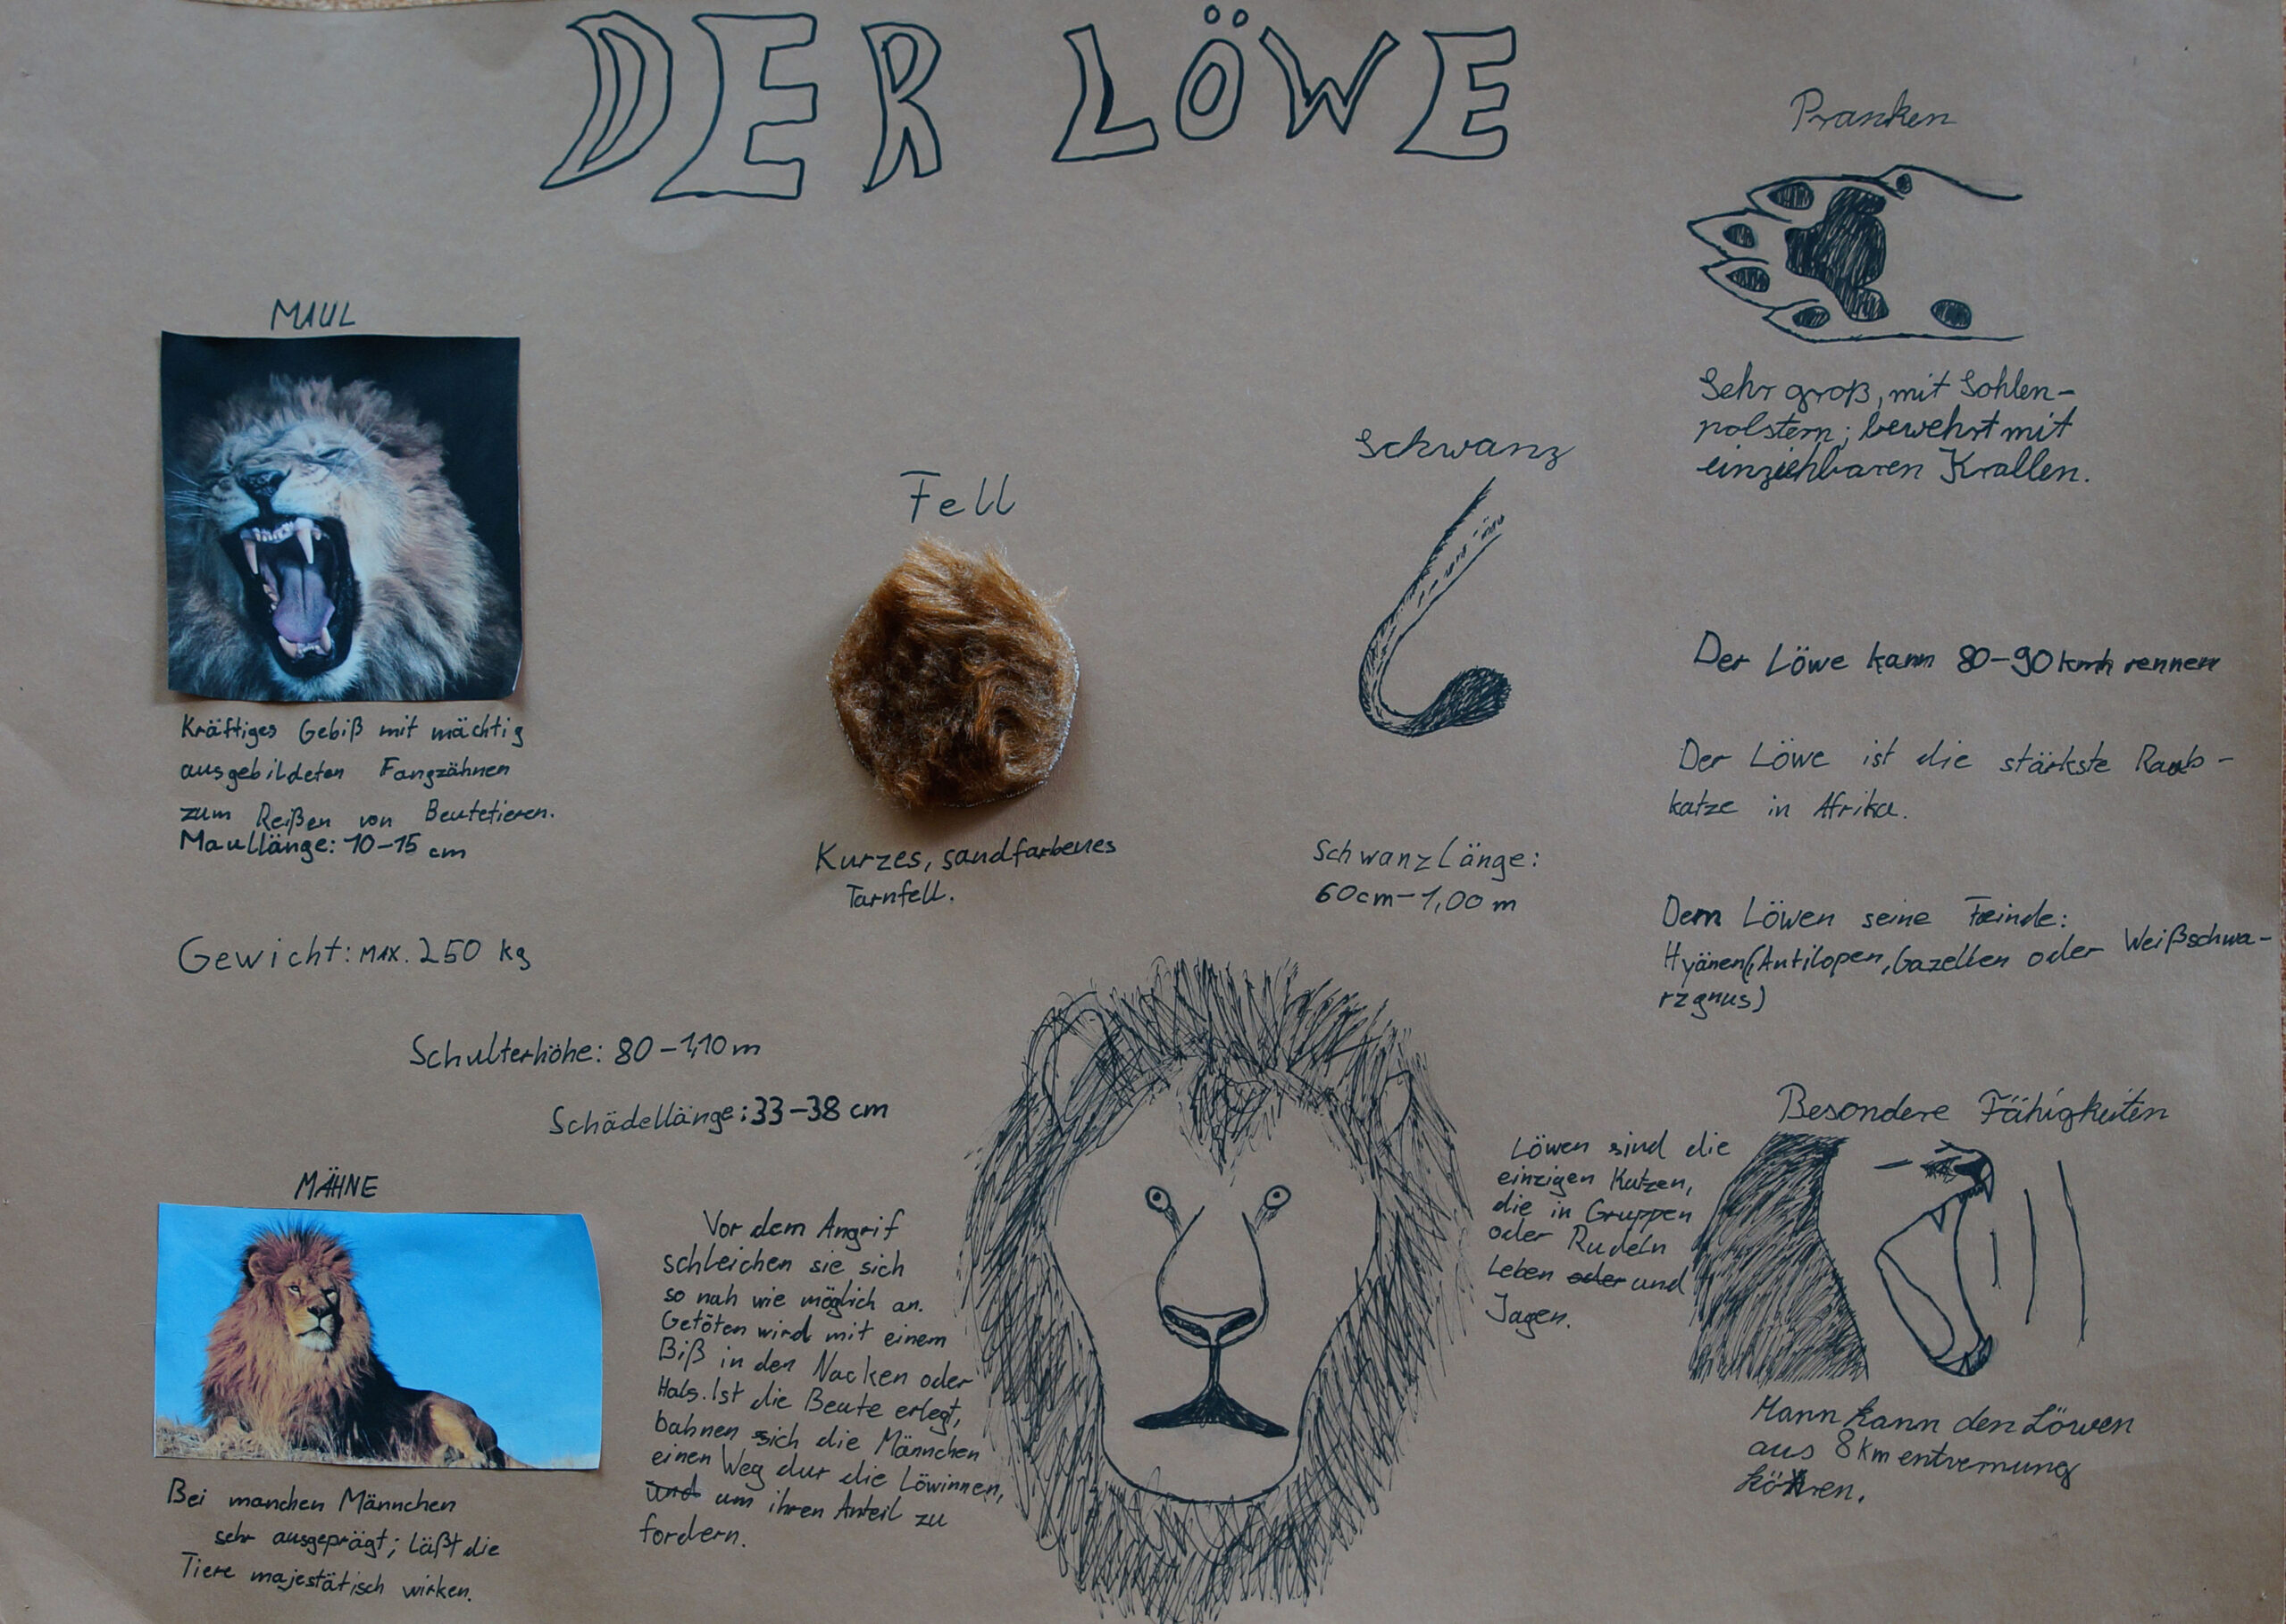 DER LÖWE
MAUL
Kräftiges Gebiß mit mächtig
ausgebildeten Fangzähnen
zum Reißen von Beutetieren.
Maullänge: 10-15 cm
Gewicht: MAX. 250 kg
Schulterhöhe: 80-1,10m
Schädellänge: 33-38 cm
MÄHNE
Bei manchen Männchen
sehr ausgeprägt; läßt die
Tiere majestätisch wirken.
Fell
Kurzes, sandfarbenes
Tarnfell.
Vor dem Angrif
schleichen sie sich
so nah wie möglich an.
Getöten wird mit einem
Biß in den Nacken oder
Hals. Ist die Beute erlegt,
bahnen sich die Männchen
einen Weg dur die Löwinnen,
und um ihren Anteil zu
fordern.
Schwanz
Schwanzlänge:
60cm-1,00m
Pranken
Sehr groß, mit Sohlen-
polstern; bewehrt mit
einziehbaren Krallen.
Der Löwe kann 80-90 kmh rennen
Der Löwe ist die stärkste Raub-
katze in Afrika.
Dem Löwen seine Feinde:
Hyänen(,Antilopen,Gazellen oder Weißschwa-
rzgnus)
Löwen sind die
einzigen Katzen,
die in Gruppen
oder Rudeln
Leben oder und
Jagen.
Besondere Fähigkeiten
Mann kann den Löwen
aus 8 km entvernung
hören.